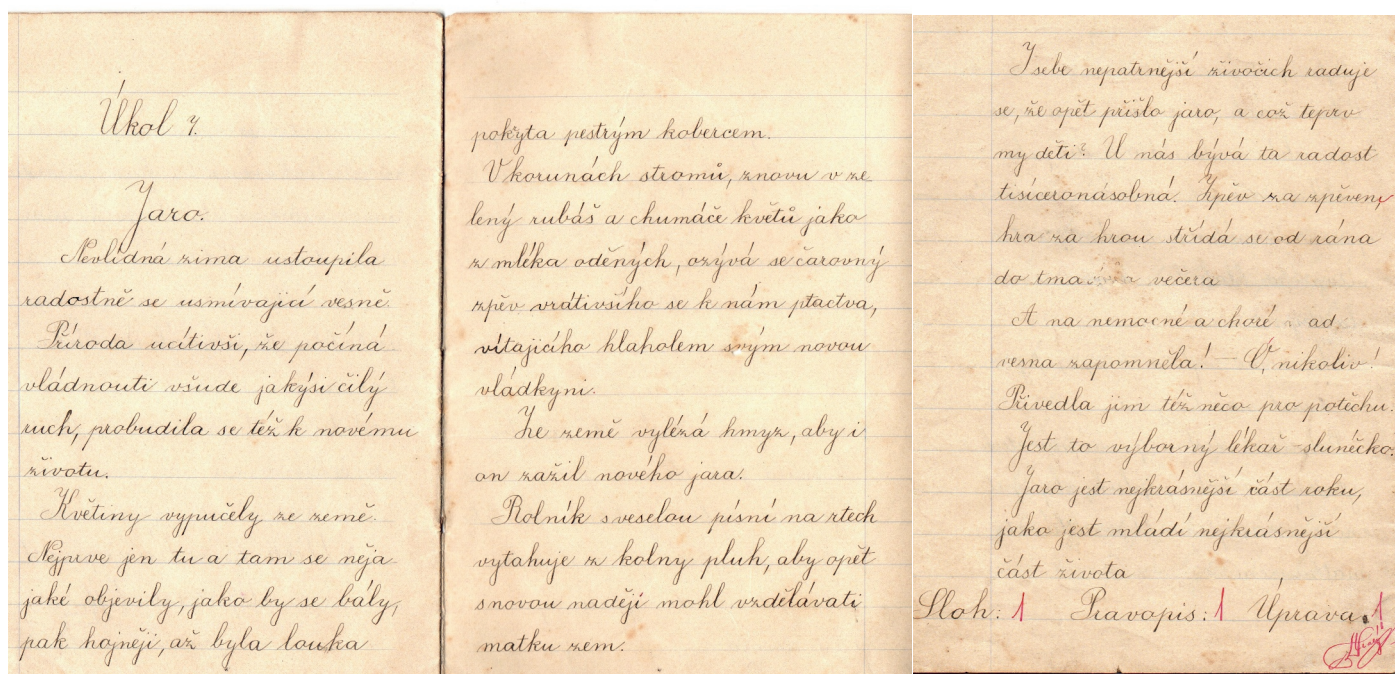 Úkol 7.
Jaro.
Nevlídná zima ustoupila
radostně se usmívající vesně.
Příroda ucítivši, že počíná
vládnouti všude jakýsi čilý
ruch, probudila se též k novému
životu.
Květiny vypučely ze země.
Nejprve jen tu a tam se něja
jaké objevily, jako by se bály,
pak hojněji, až byla louka
pokryta pestrým kobercem.
V korunách stromů, znovu v ze
lený rubáš a chumáče květů jako
z mléka oděných, ozývá se čarovný
zpěv vrátivšího se k nám ptactva,
vítajícího hlaholem svým novou
vládkyni.
Ze země vylézá hmyz, aby i
on zažil nového jara.
Rolník s veselou písní na rtech
vytahuje z kolny pluh, aby opět
s novou nadějí mohl vzdělávati
matku zem.
I sebe nepatrnější živočich raduje
se, že opět přišlo jaro, a což teprv
my děti? U nás bývá ta radost
tisíceronásobná. Zpěv za zpěvem,
hra za hrou střídá se od rána
do tma večera
A na nemocné a choré
vesna zapomněla! – Ó, nikoliv!
Přivedla jim též něco pro potěchu.
Jest to výborný lékař – slunéčko.
Jaro jest nejkrásnější část roku,
jako jest mládí nejkrásnější
část života
Sloh: 1 Pravopis: 1 Úprava: 1